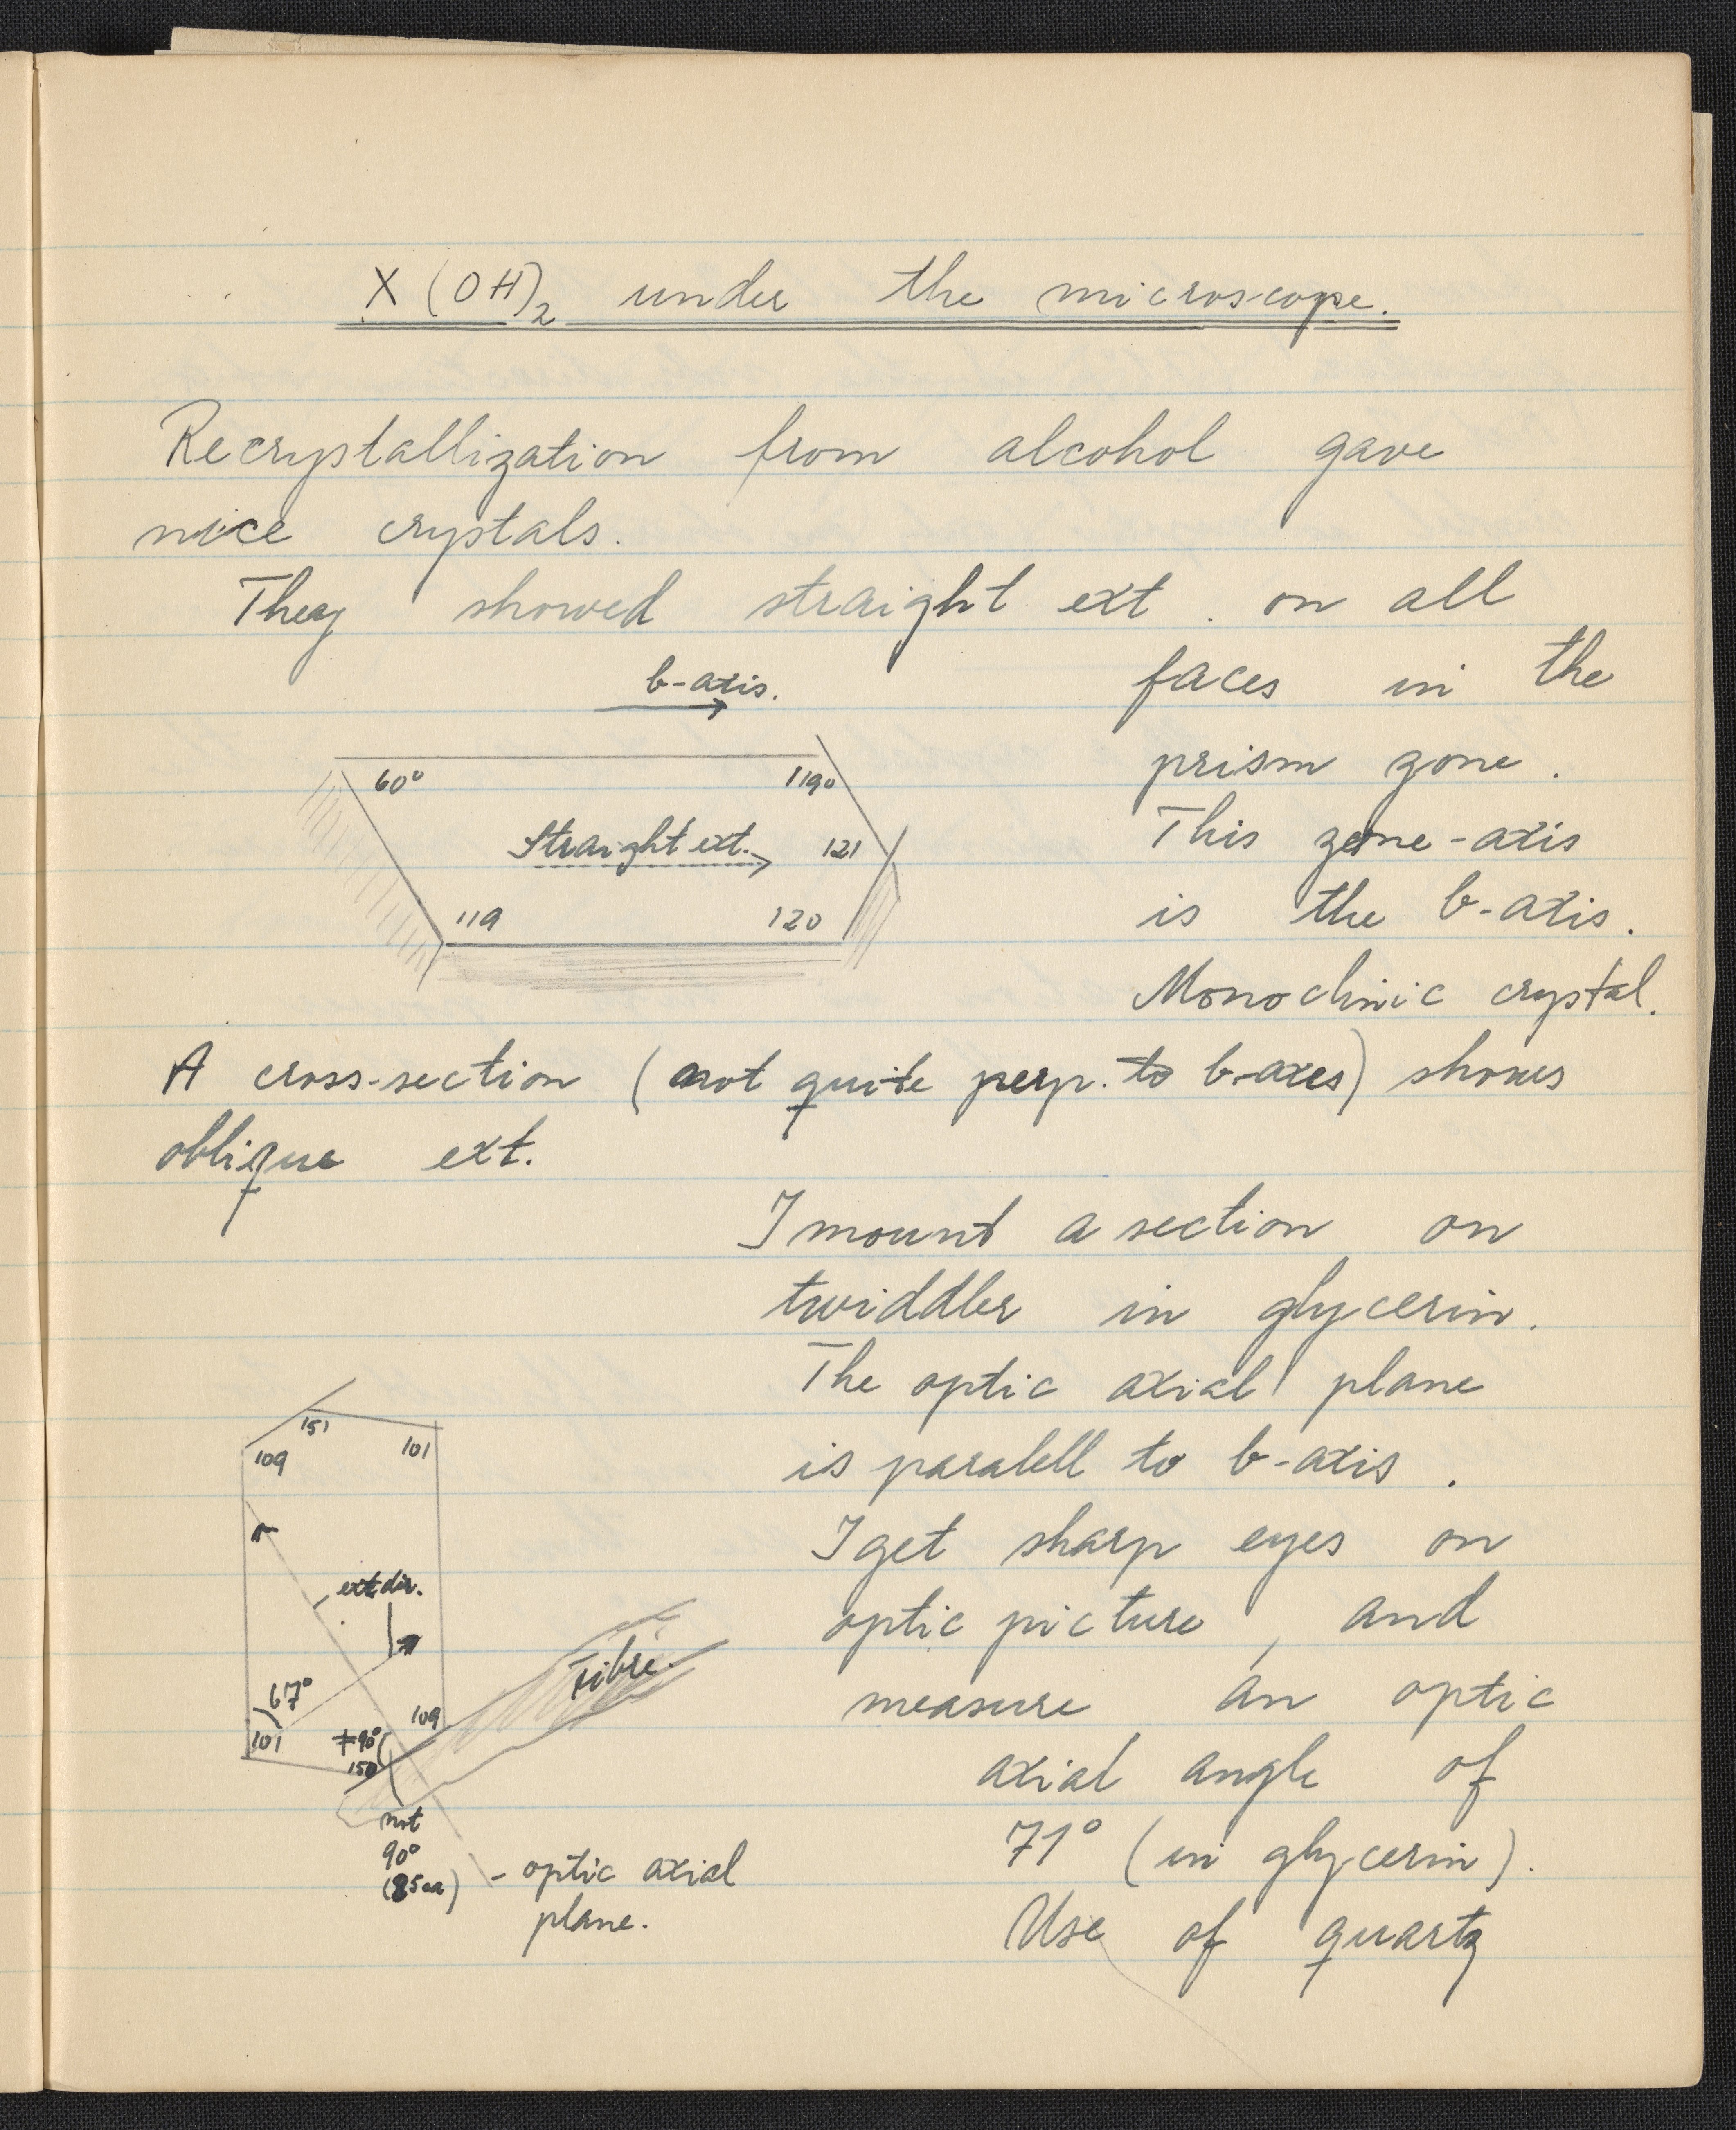 X (OH)2 under the microscope.
Recrystallization from alcohol gave
nice crystals.
They showed straight ext. on all
faces in the
prism zone.
This zone-axis
is the b-axis.
Monoclinic crystal.
b-axis.
60°
119°
Straight ext.
121
119
120
A cross-section (not quite perp. to b-axes) shows
oblique ext.
I mount a section on
twiddler in glycerin.
The optic axial plane
is paralell to b-axis.
I get sharp eyes on
optic picture, and
measure an optic
axial angle of
71° (in glycerin).
Use of quartz
151
109
101
ext dir.
67°
101
109
≠90°
150
Fibre.
not
90°
(85ca)
- optic axial
plane.